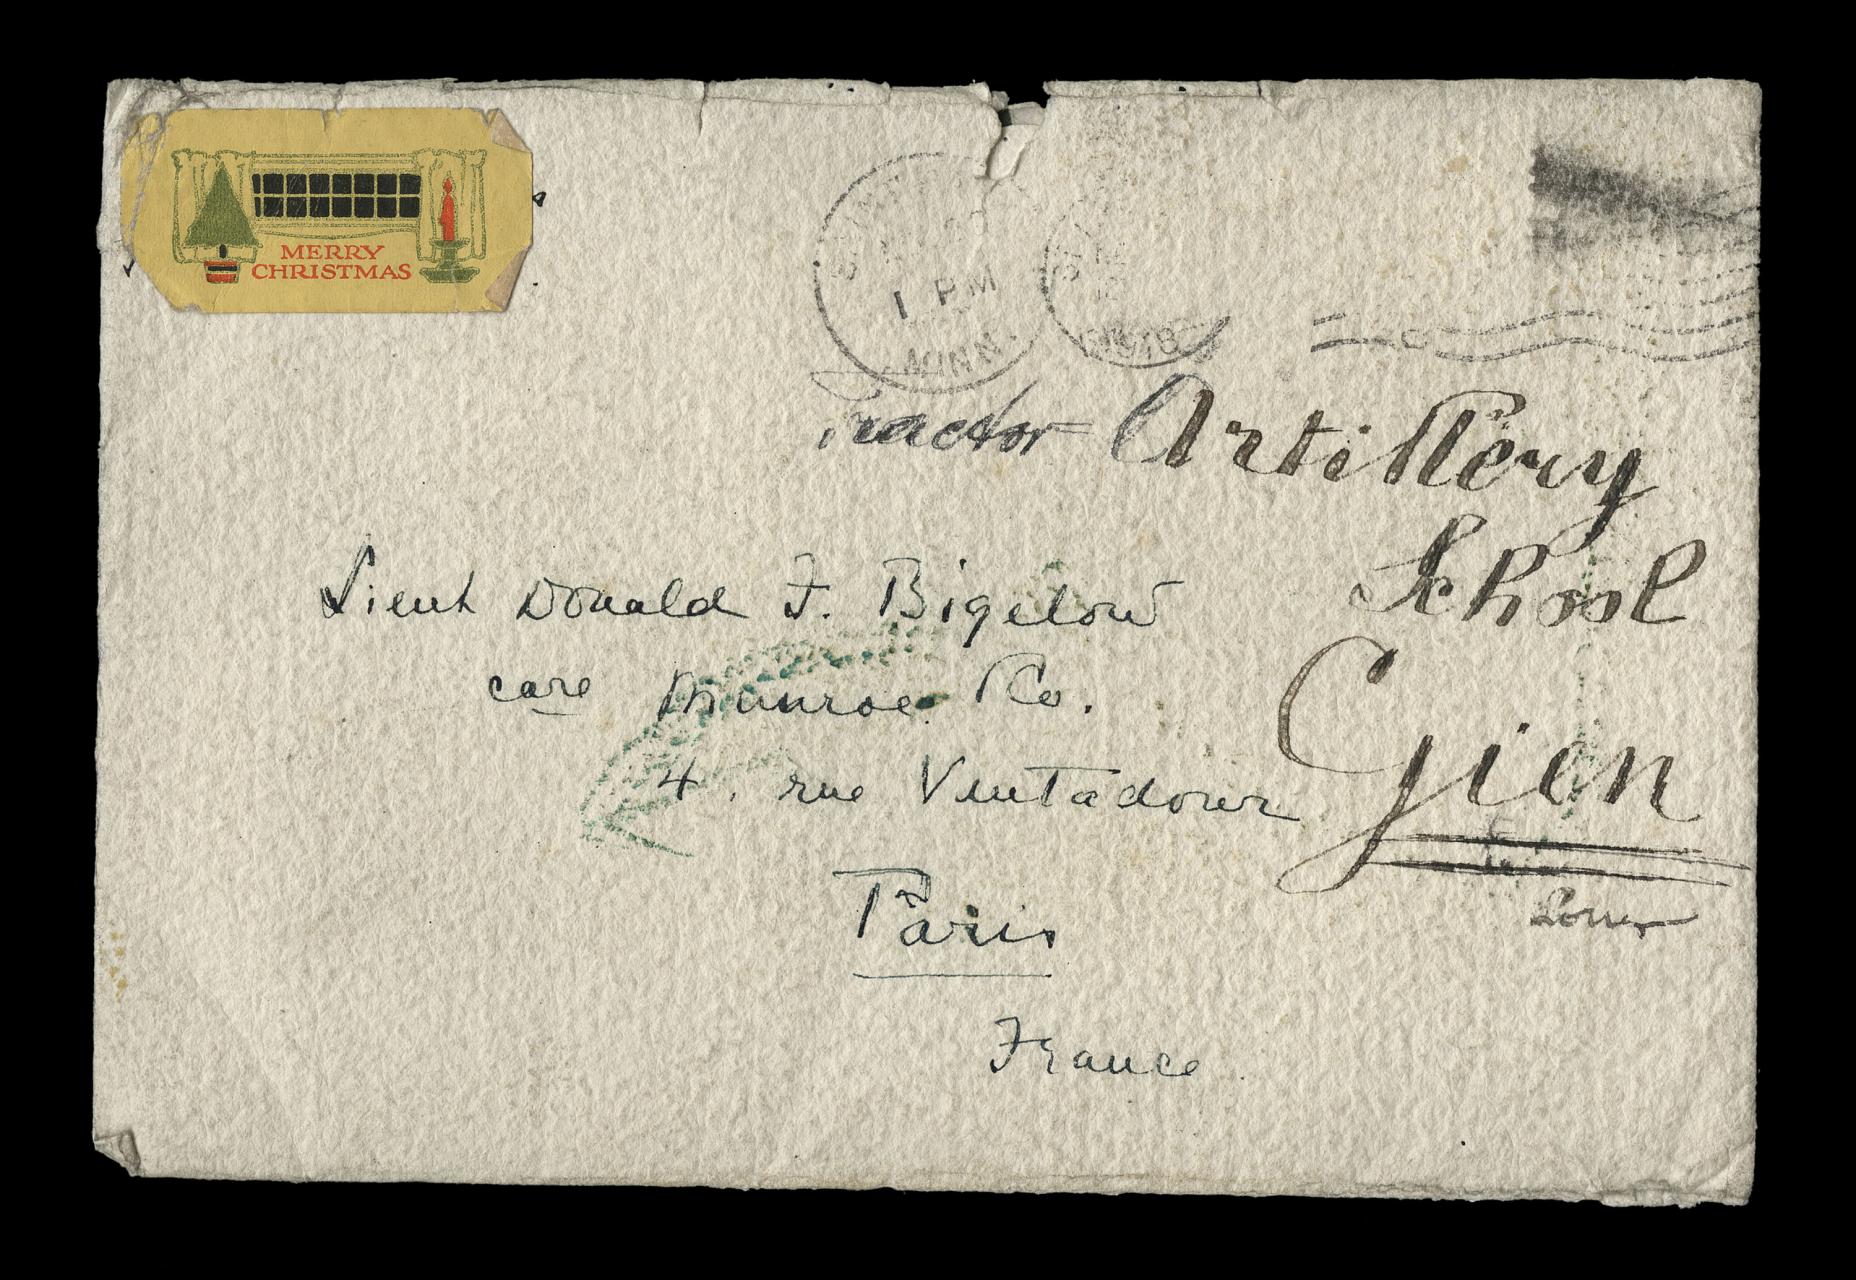 MERRY
CHRISTMAS
1 PM
MINN.
Tractor Artillery
School
Gien
Lieut Donald F. Bigelow
care Munroe Co.
4, rue Ventadour
Paris
France